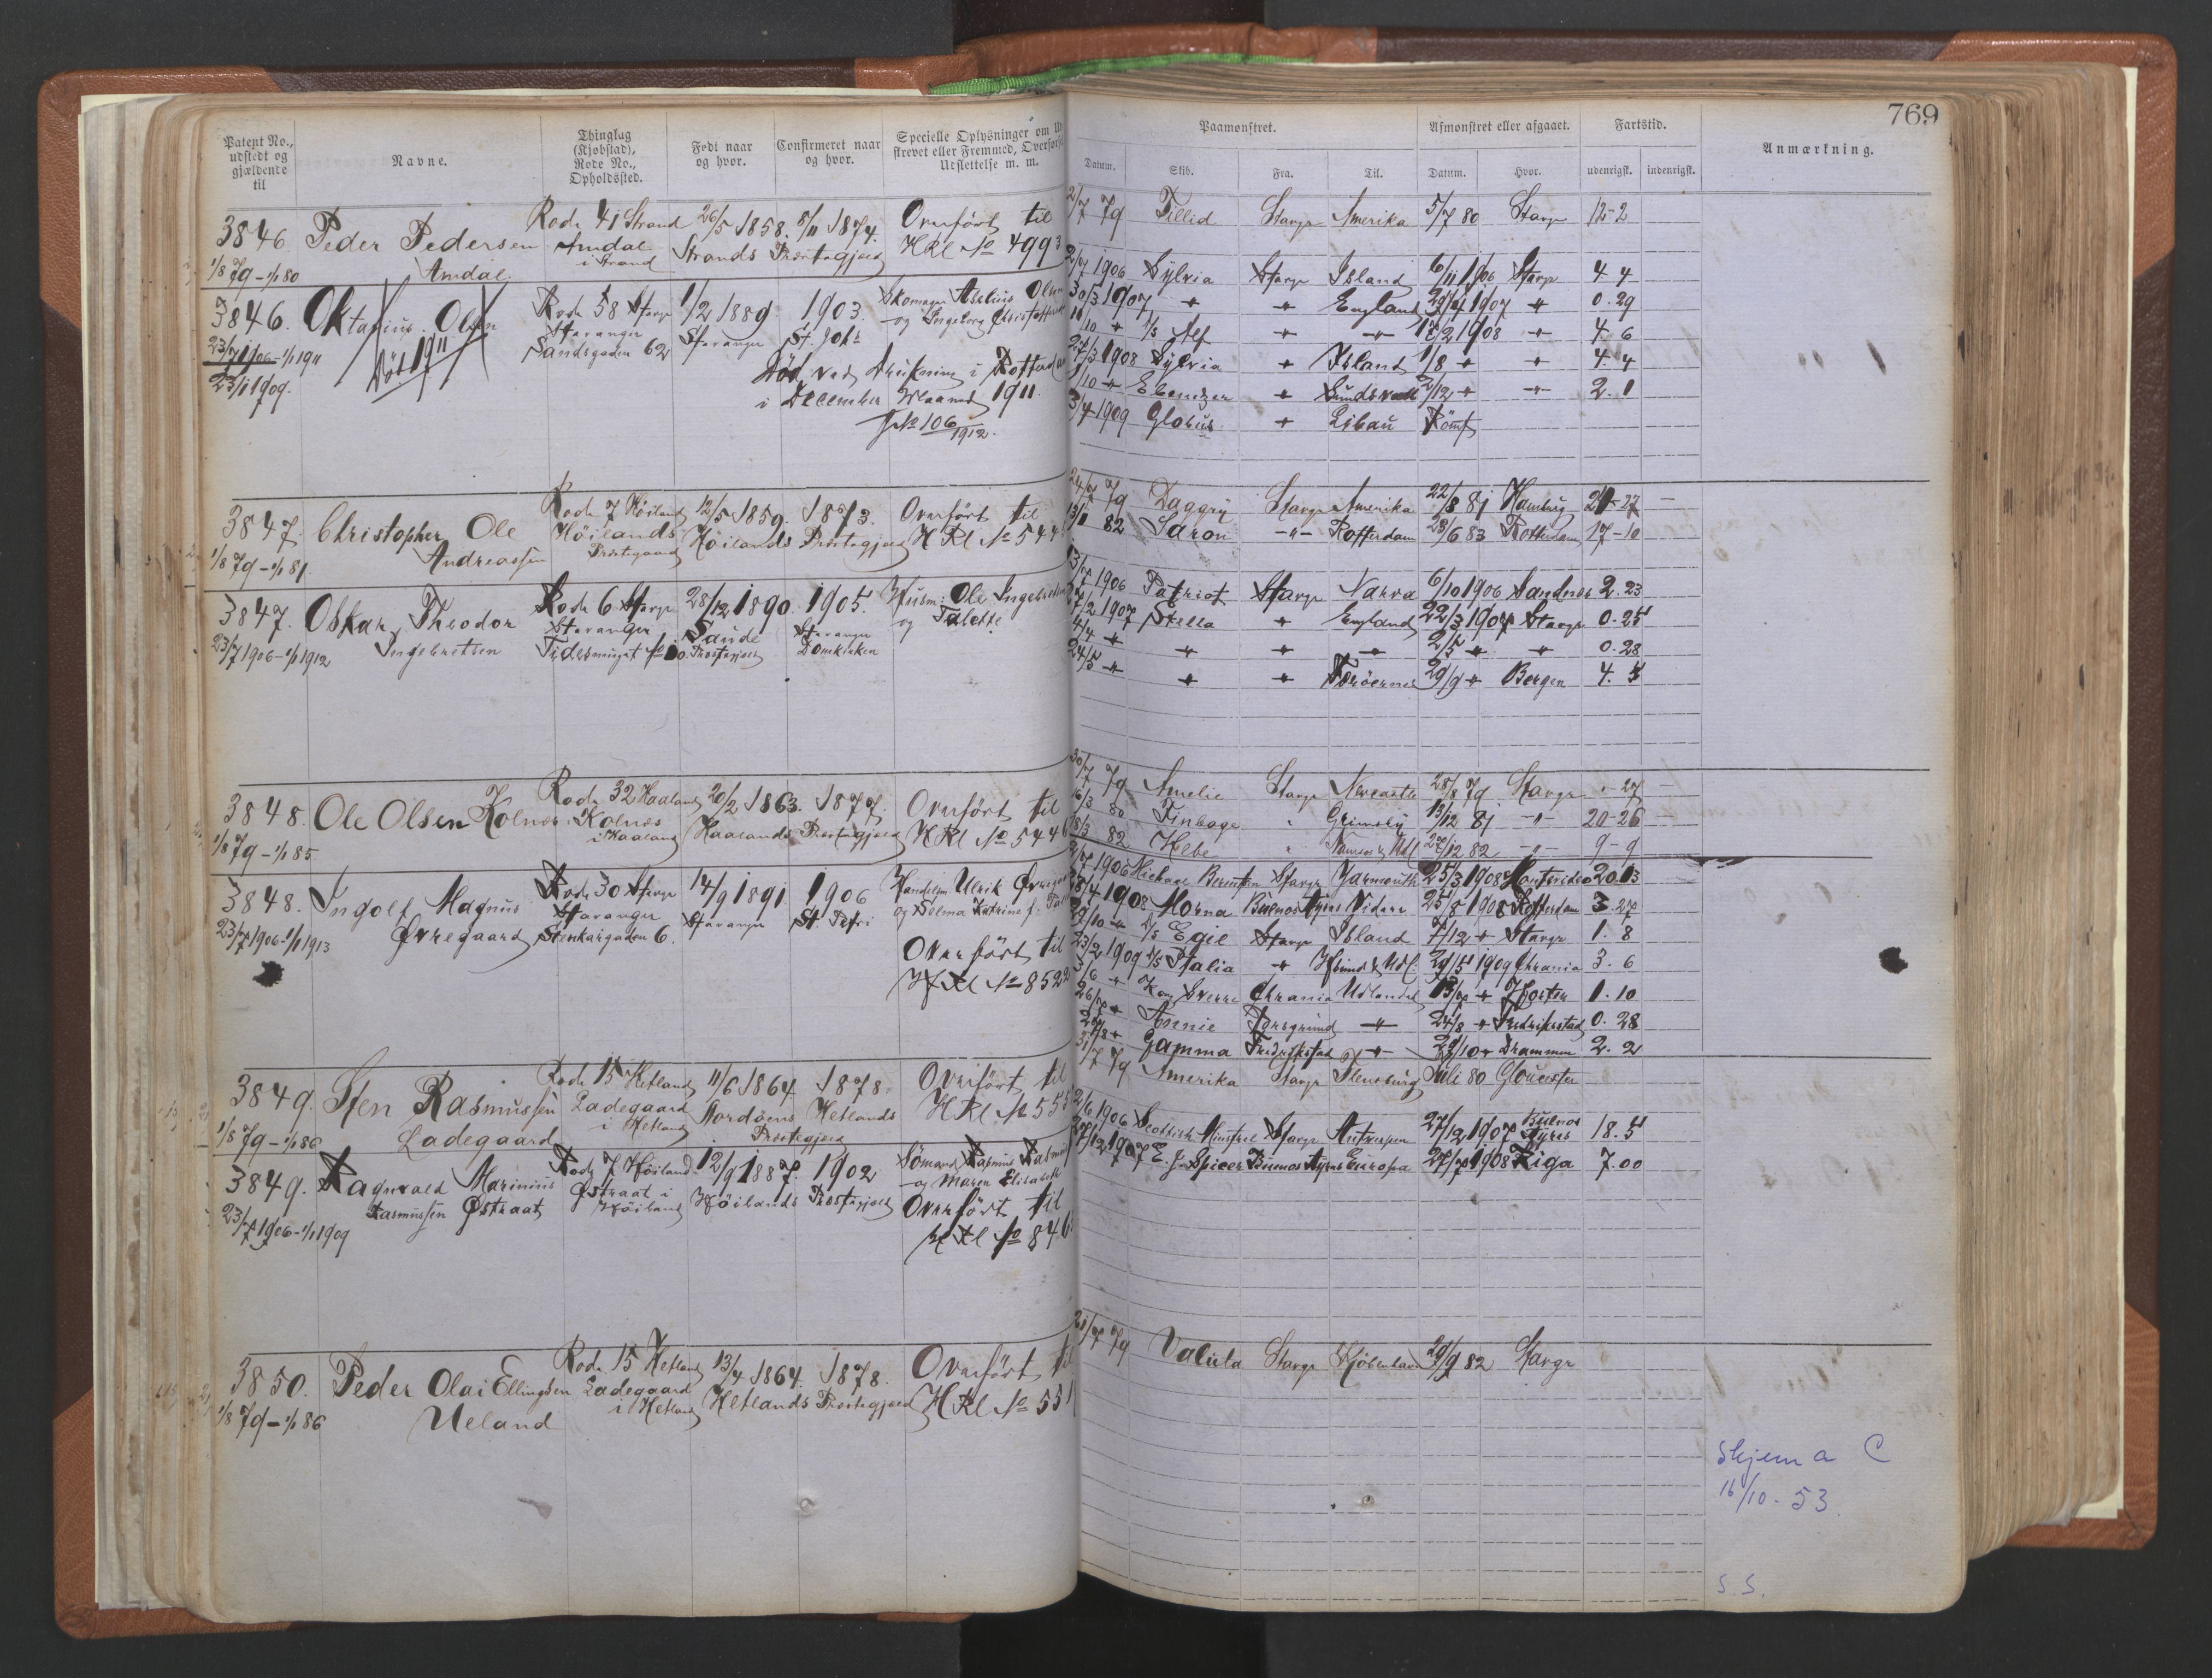 769
Patent No., udstedt og gjældende til
Navne.
Thinglag (Kjøbstad), Rode No., Opholdssted.
Født naar og hvor.
Confirmeret naar og hvor.
Specielle Oplysninger om
strevet eller Fremmed,
Udslettelse m. m.
Paamønstret.
Afmønstret eller afgaaet.
Fartstid.
Anmærkning.
Datum. Skib. Fra. Til. Datum. Hvor. udenrigsk. indenrigsk.
3846. Peder Pedersen Rode 41 Strand 26/5 1858. 8/11 1874. Overført til
1/8 79 - 1/1 80 Amdal. Amdal i Strand Strands Præstegjeld HRl No 4993
2/7 79 Tillid Stavgr Amerika 5/7 80 Stavgr 12-2
3846. Oktavius Olsen Rode 58 Stavgr 1/2 1889 1903. Skomager Aselius Olsen
23/7 1906 - 1/1 1911 Død 1911 Stavanger Stavanger St. Joh. og Ingeborg
23/1 1909. Sandsgaden 62
Død ved Drukning i
i December Maaned 1911.
JNo 106/1912.
1906 Sylvia Stavgr Island 6/11 1906 Stavgr 4 4
30/3 1907 " " England 29/4 1907 " 0.29
/10 " S/S Alf " " 17/2 1908 " 4. 6
27/3 1908 Sylvia " Island 1/8 " " 4. 4
1/10 " Ebenezer " Sundsvall 2/12 " " 2. 1
3/4 1909 Globus " Libau Römt
3847. Christopher Ole Rode 7 Høiland 12/5 1859. 1873. Overført til
1/8 79 - 1/1 81. Andreassen Høilands Præstegaard Høilands Præstegjeld HRl No 544
24/7 79 Daggry Stavgr Amerika 22/8 81 Hamburg 21-27
82 Saron -"- Rotterdam 28/6 83 Rotterdam 17-10
3847. Oskar Theodor Rode 6 Stavgr 28/12 1890. 1905. Husm: Ole Ingebretsen
23/7 1906 - 1/1 1912 Ingebretsen Stavanger Saude Præstegjeld Stavanger Domkirken og Talette
1906 Patriot Stavgr Narva 6/10 1906 Sandnes 2.23
7/2 1907 Stella " England 22/3 1907 Stavgr 0.25
4/4 " " " " 2/5 " " 0.28
24/5 " " " Færøerne 29/9 " Bergen 4. 5
3848. Ole Olsen Kolnes Rode 32 Haaland 20/2 1863. 1877. Overført til
1/8 79 - 1/1 85. Kolnes i Haaland Haalands Præstegjeld HRl No 544
30/7 79 Amelie Stavgr Newcastle 28/8 79 Stavgr - 27
16/3 80 Finboge " Grimsby 13/12 81 -"- 20-26
18/3 82 Hebe " 82 -"- 9-9
3848. Ingolf Magnus Rode 30 Stavgr 14/9 1891 1906 Ulrik Øvregaard
23/7 1906 - 1/1 1913 Øvregaard Stavanger Stenkargaden 6. Stavanger St. Petri og Selma Katrine f.
Overført til
HRl No 852
1906 Stavgr Yarmouth 25/3 1908 Montevideo 20.13
18/4 1908 Morna Buenos Ayres Videre 25/8 1908 Rotterdam 3.27
29/10 " S/S Egie Stavgr Island 7/12 " Stavgr 1. 8
23/2 1909 S/S Italia " 29/5 1909 Chrania 3. 6
3/6 " Kong Sverre Chrania Udlandet 13/7 " Horten 1.10
26/7 " Annie Porsgrund " 24/8 " Fredrikstad 0.28
/8 " Gamma Fredrikstad " 29/10 " Drammen 2. 2
3849. Sten Rasmussen Rode 15 Hetland 11/6 1864 1878. Overført til
1/8 79 - 1/1 86 Ladegaard Ladegaard i Hetland Hetlands Præstegjeld HRl No 555
31/7 79 Amerika Stavgr Flensburg Juli 80 Gloucester
3849. Ragnvald Marinius Rode 7 Høiland 12/9 1887. 1902 Sømand Rasmus
23/7 1906 - 1/1 1909 Rasmussen Østraat Østraat i Høiland Høilands Præstegjeld og Maren Elisabeth
Overført til
HRl No 846
2/6 1906 Scottish Minstrel Stavgr Antwerpen 27/12 1907 Buenos Ayres 18.5
27/12 1907 E. J. Spicer Buenos Ayres Europa 27/7 1908 Riga 7.00
3850. Peder Olai Ellingsen Rode 15 Hetland 13/4 1864. 1878. Overført til
1/8 79 - 1/1 86 Ueland Ladegaard i Hetland Hetlands Præstegjeld HRl No 551
31/7 79 Valula Stavgr Kjöbenhavn 29/9 82 Stavgr
Skjema C
16/10-53.
S.S.